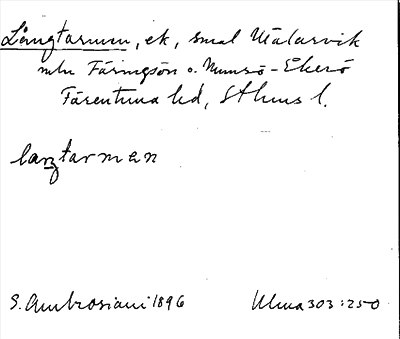 Långtarmen, ek, smal Mälarvik
mln Färingsön o. Munsö-Ekerö
Färentuna hd, Sthlms l.
långtarmen
S. Ambrosiani 1896 Ulma 303:250